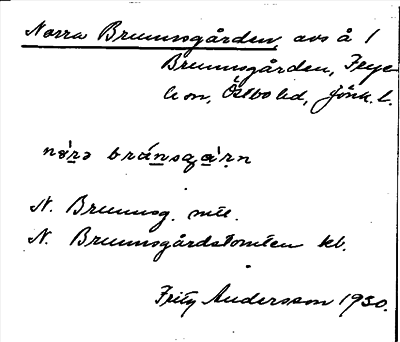 Norra Brunnsgården, avs å 1
Brunnsgården, Frye
ls sn, Östbo hd, Jönk. l.
brǻnsgɑ̀ṛn
N. Brunnsg. mtl.
N. Brunnsgårdstomten lht.
Fritz Andersson 1930.